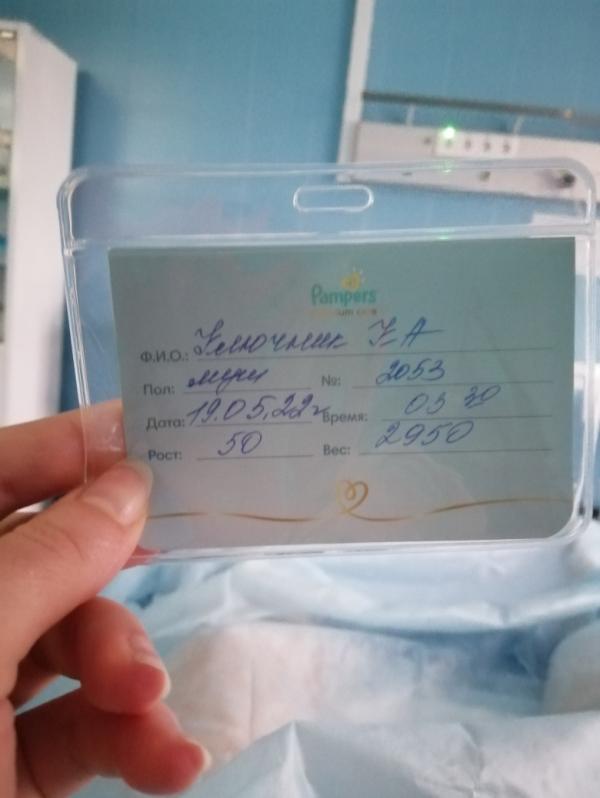 Pampers
premium care
Ф.И.О.:
Пол: муж №: 2053
Дата: 19.05.22г Время: 03 30
Рост: 50 Вес: 2950